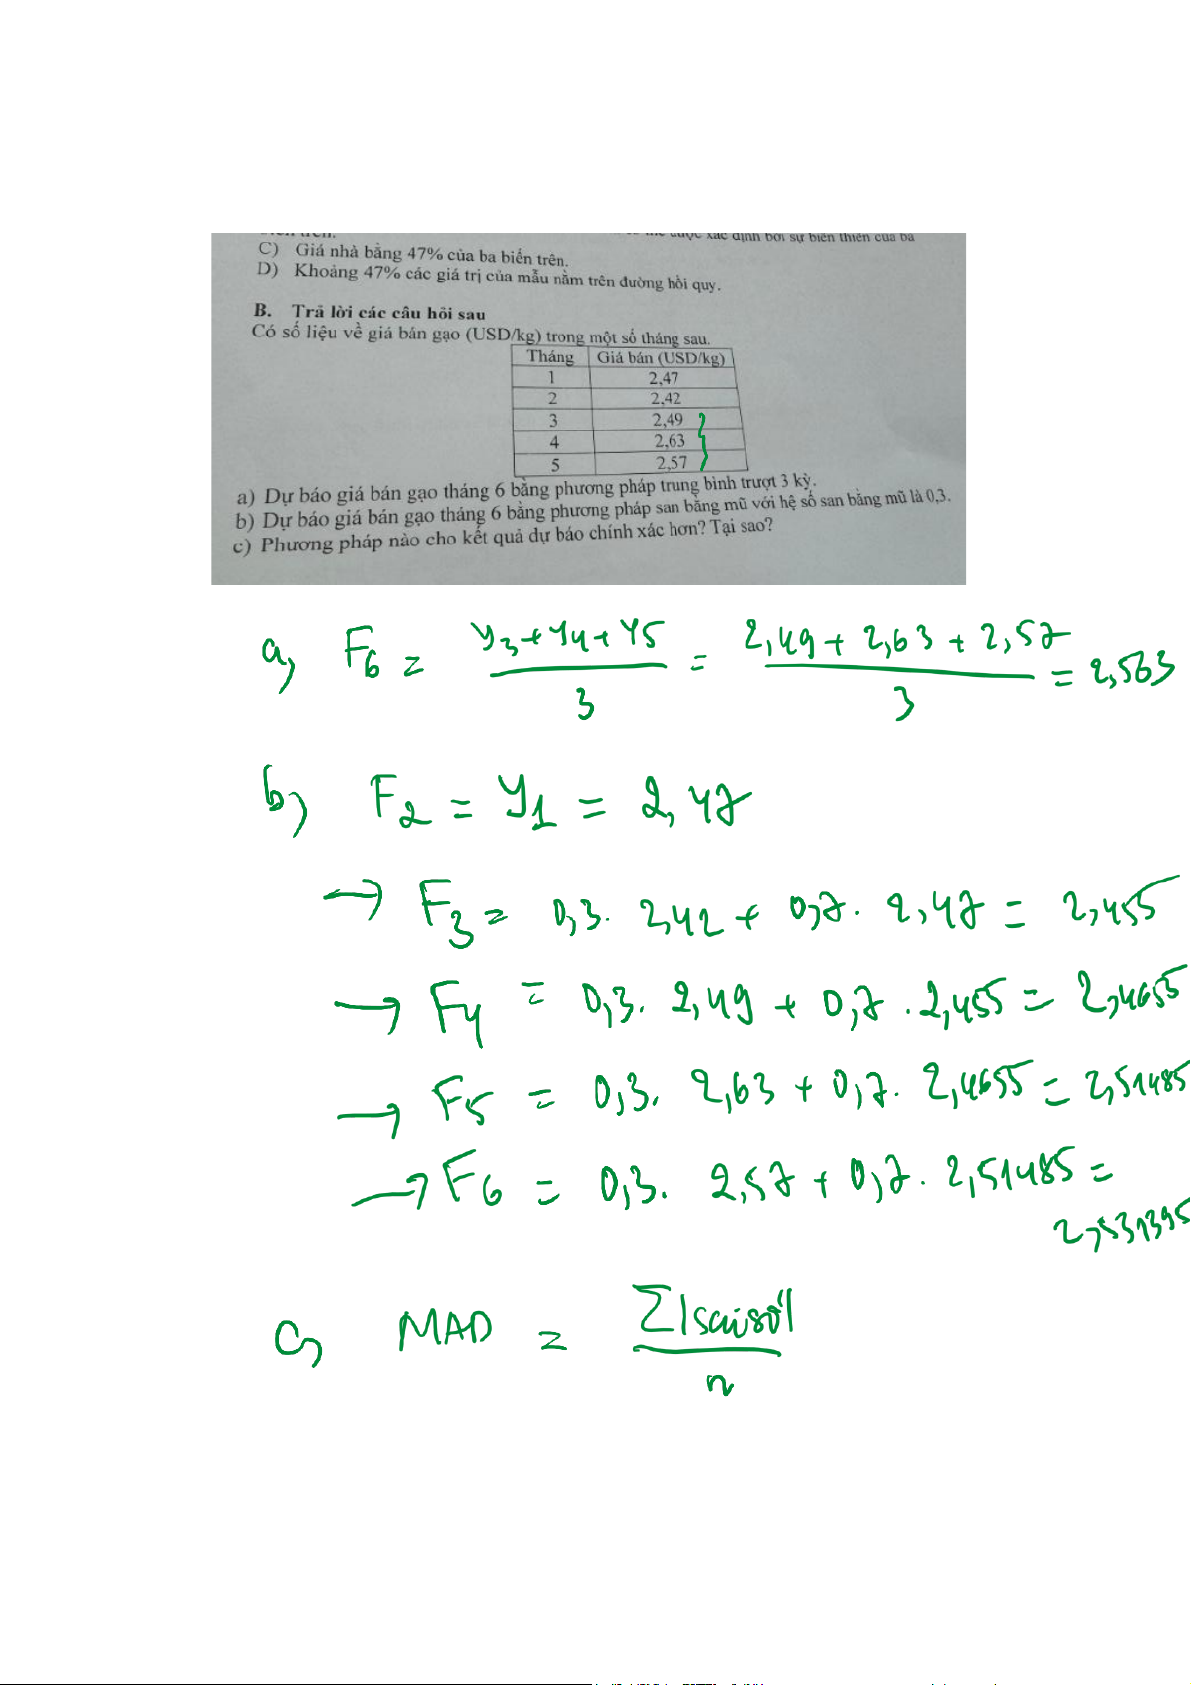 xác định bởi sự biến thiên của ba
C) Giá nhà bằng 47% của ba biến trên.
D) Khoảng 47% các giá trị của mẫu nằm trên đường hồi quy.
B. Trả lời các câu hỏi sau
Có số liệu về giá bán gạo (USD/kg) trong một số tháng sau.
Tháng Giá bán (USD/kg)
1 2,47
2 2,42
3 2,49
4 2,63
5 2,57
a) Dự báo giá bán gạo tháng 6 bằng phương pháp trung bình trượt 3 kỳ.
b) Dự báo giá bán gạo tháng 6 bằng phương pháp san bằng mũ với hệ số san bằng mũ là 0,3.
c) Phương pháp nào cho kết quả dự báo chính xác hơn? Tại sao?
a, F6 = (y3 + y4 + y5)/3 = (2,49 + 2,63 + 2,57)/3 = 2,563
b, F2 = y1 = 2,47
→ F3 = 0,3. 2,42 + 0,7. 2,47 = 2,455
→ F4 = 0,3. 2,49 + 0,7 . 2,455 = 2,4655
→ F5 = 0,3. 2,63 + 0,7. 2,4655 = 2,51485
→ F6 = 0,3. 2,57 + 0,7. 2,51485 =
2,531395
c, MAD = Σ|sai số|/n